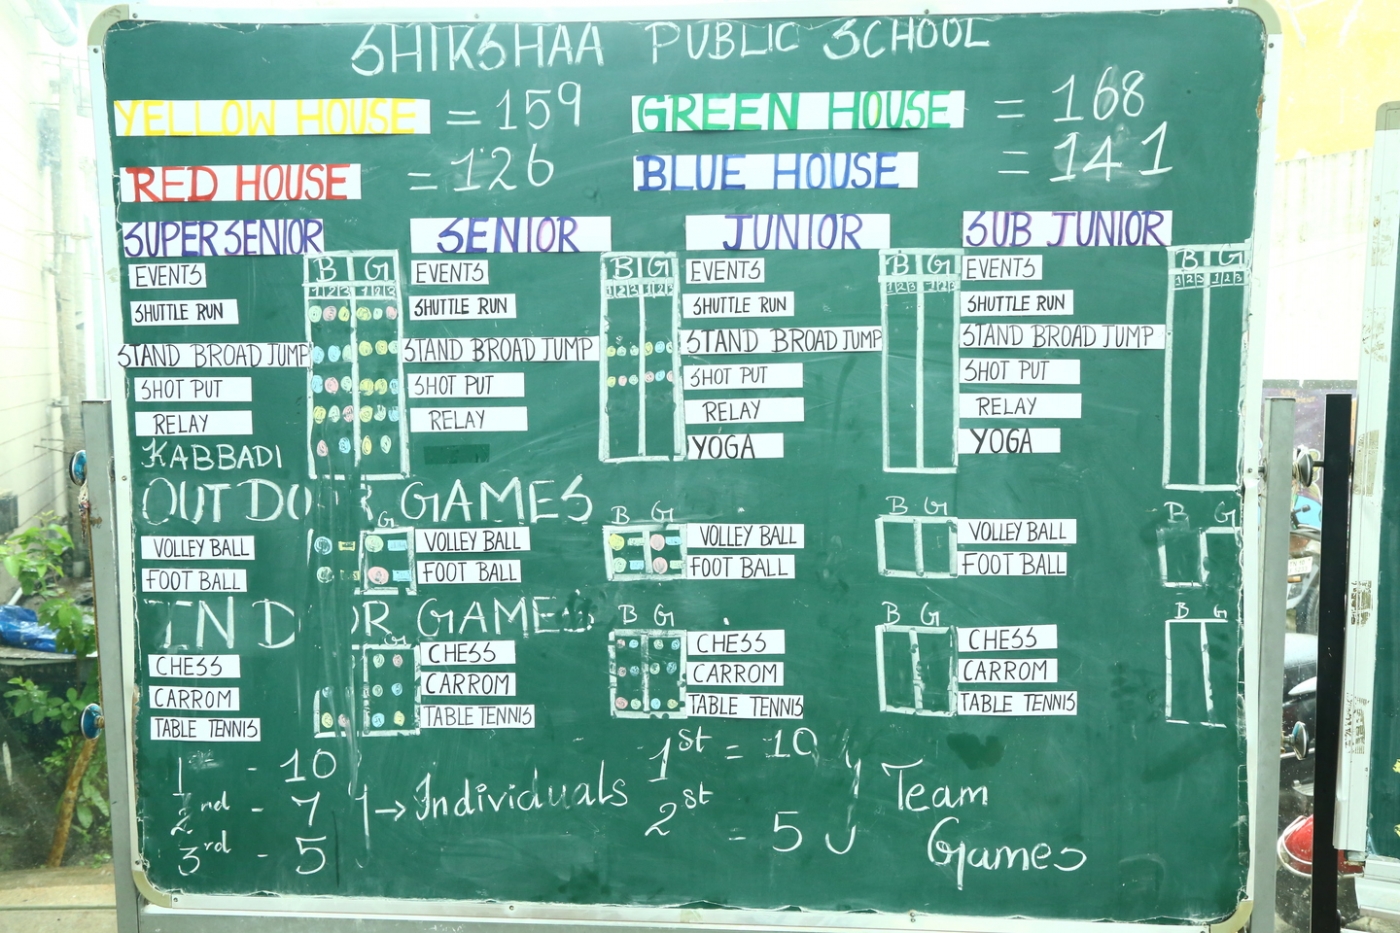 SHIKSHAA PUBLIC SCHOOL
YELLOW HOUSE = 159 GREEN HOUSE = 168
RED HOUSE = 126 BLUE HOUSE = 141
SUPER SENIOR SENIOR JUNIOR SUB JUNIOR
EVENTS B G EVENTS B G EVENTS B G EVENTS B G
1 2 3 1 2 3 1 2 3 1 2 3 1 2 3 1 2 3 1 2 3 1 2 3
SHUTTLE RUN SHUTTLE RUN SHUTTLE RUN SHUTTLE RUN
STAND BROAD JUMP STAND BROAD JUMP STAND BROAD JUMP STAND BROAD JUMP
SHOT PUT SHOT PUT SHOT PUT SHOT PUT
RELAY RELAY RELAY RELAY
KABBADI YOGA YOGA
OUTDOOR GAMES
G B G B G B G
VOLLEY BALL VOLLEY BALL VOLLEY BALL VOLLEY BALL
FOOT BALL FOOT BALL FOOT BALL FOOT BALL
IND OR GAMES
G B G B G B G
CHESS CHESS CHESS CHESS
CARROM CARROM CARROM CARROM
TABLE TENNIS TABLE TENNIS TABLE TENNIS TABLE TENNIS
1st - 10 1st = 10
2nd - 7 → Individuals 2st - 5 Team
3rd - 5 Games